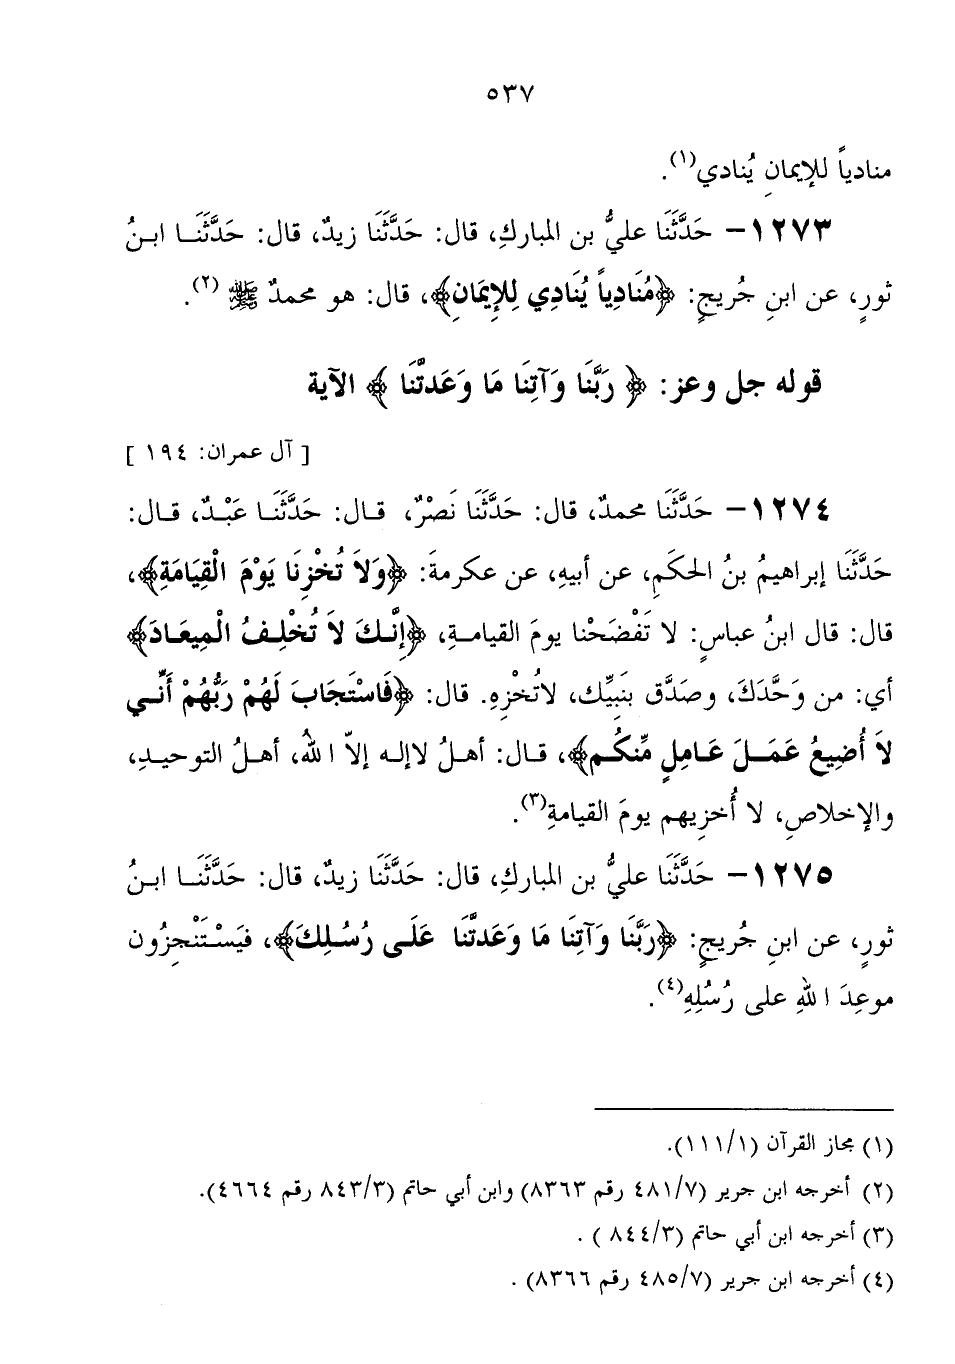 ٥٣٧
منادياً للإيمانِ يُنادي(١).
١٢٧٣- حَدَّثَنَا عليُّ بن المباركِ، قال: حَدَّثَنَا زيدٌ، قال: حَدَّثَنَـا ابـنُ
ثورٍ، عن ابنِ جُريجٍ: ﴿مُنَادِياً يُنَادِي لِلإِيمَانِ﴾، قال: هو محمدٌ ﷺ (٢).
قوله جل وعز: ﴿ رَبَّنَا وَآتِنَا مَا وَعَدتَّنَا ﴾ الآية
[ آل عمران: ١٩٤ ]
١٢٧٤- حَدَّثَنَا محمدٌ، قال: حَدَّثَنَا نَصْرٌ، قـال: حَدَّثَنَـا عَبْـدٌ، قـال:
حَدَّثَنَا إبراهيمُ بنُ الحكَمِ، عن أبيهِ، عن عكرمةَ: ﴿وَلاَ تُخْزِنَا يَوْمَ الْقِيَامَةِ﴾،
قال: قال ابنُ عباسٍ: لا تَفْضَحْنا يومَ القيامـةِ، ﴿إِنَّـكَ لاَ تُخْلِـفُ الْمِيعَـادَ﴾
أي: من وَحَّدَكَ، وصَدَّق بنَبِيِّك، لاتُخْزِهِ. قال: ﴿فَاسْتَجَابَ لَهُمْ رَبُّهُمْ أَنِّـي
لاَ أُضِيعُ عَمَـلَ عَـامِلٍ مِّنكُـم﴾، قـال: أهـلُ لاإلـه إلاّ اللهُ، أهـلُ التوحيـدِ،
والإخلاصِ، لا أُخزِيهم يومَ القيامةِ(٣).
١٢٧٥- حَدَّثَنَا عليُّ بن المباركِ، قال: حَدَّثَنَا زيدٌ، قال: حَدَّثَنَـا ابـنُ
ثورٍ، عن ابنِ جُريجٍ: ﴿رَبَّنَا وَآتِنَا مَا وَعَدتَّنَا عَلَـى رُسُـلِكَ﴾، فيَسْـتَنْجِزُون
موعِدَ اللهِ على رُسُلِهِ(٤).
(١) مجاز القرآن (١/ ١١١).
(٢) أخرجه ابن جرير (٧/ ٤٨١ رقم ٨٣٦٣) وابن أبي حاتم (٣/ ٨٤٣ رقم ٤٦٦٤).
(٣) أخرجه ابن أبي حاتم (٣/ ٨٤٤ ) .
(٤) أخرجه ابن جرير (٧/ ٤٨٥ رقم ٨٣٦٦) .